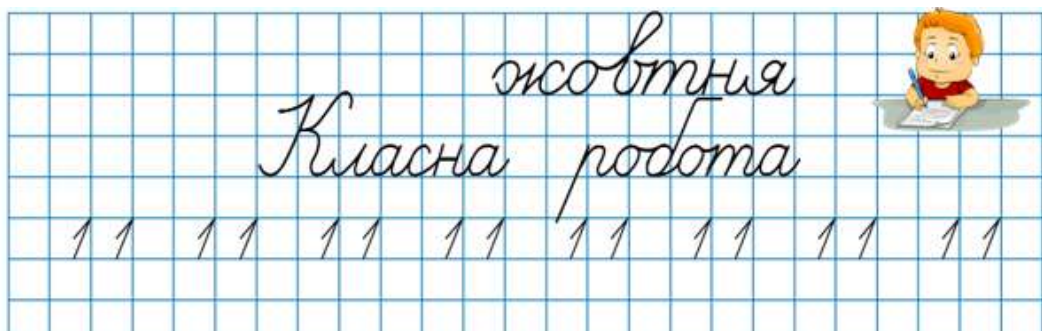 жовтня
Класна робота
11 11 11 11 11 11 11 11